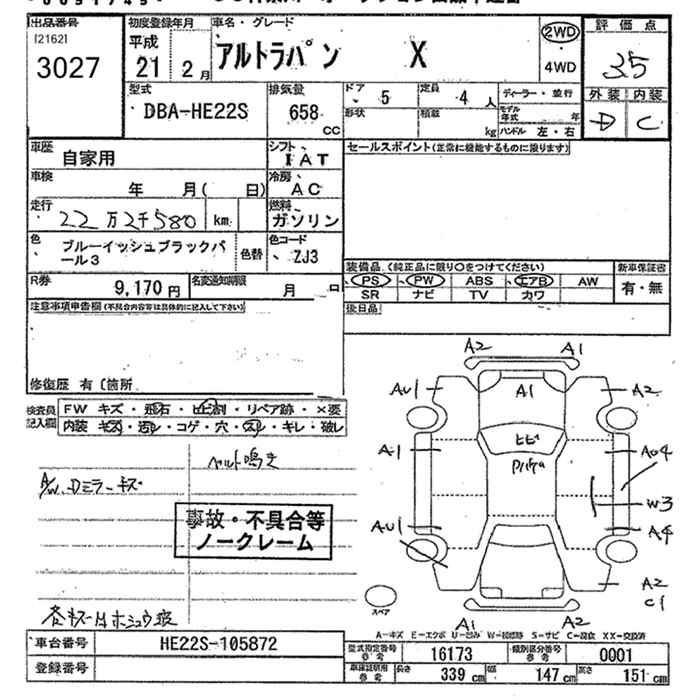 出品番号
[2162]
3027
初度登録年月
平成
21 2月
車名・グレード
アルトラパン X
2WD
・4WD
評価点
3.5
外装 内装
D C
型式
DBA-HE22S
排気量
658
CC
ドア
5
定員
4人
形状
積載
kg
ディーラー・並行
モデル年式 年
ハンドル 左・右
車歴
自家用
シフト
IAT
セールスポイント(正常に機能するものに限ります)
車検
年 月( 日)
冷房
AC
走行
22万2千580 km
燃料
ガソリン
色
ブルーイッシュブラックパール3
色替
色コード
ZJ3
R券
9,170円
名変通知期限
月 日
装備品(純正品に限り○をつけてください)
新車保証書
PS PW ABS エアB AW
SR ナビ TV カワ
有・無
後日品
注意事項申告欄(不具合内容等は具体的に記入して下さい)
修復歴 有〔箇所
検査員記入欄
FW キズ・飛石・ヒビ割・リペア跡・×要
内装 キズ・汚レ・コゲ・穴・スレ・キレ・破レ
ベルト鳴き
A/W、Dミラーキズ
事故・不具合等
ノークレーム
A2 A1
AU1 A1 A2
A1 ヒビ AU4
W3
AU1 A4
A2
C1
スペア
A1 A2
A-キズ E-エクボ U-凹み W-補修跡 S-サビ C-腐食 XX-交換済
車台番号
HE22S-105872
登録番号
型式指定番号 参考
16173
類別区分番号 参考
0001
車庫証明用 参考
長さ 339cm 幅 147cm 高さ 151cm